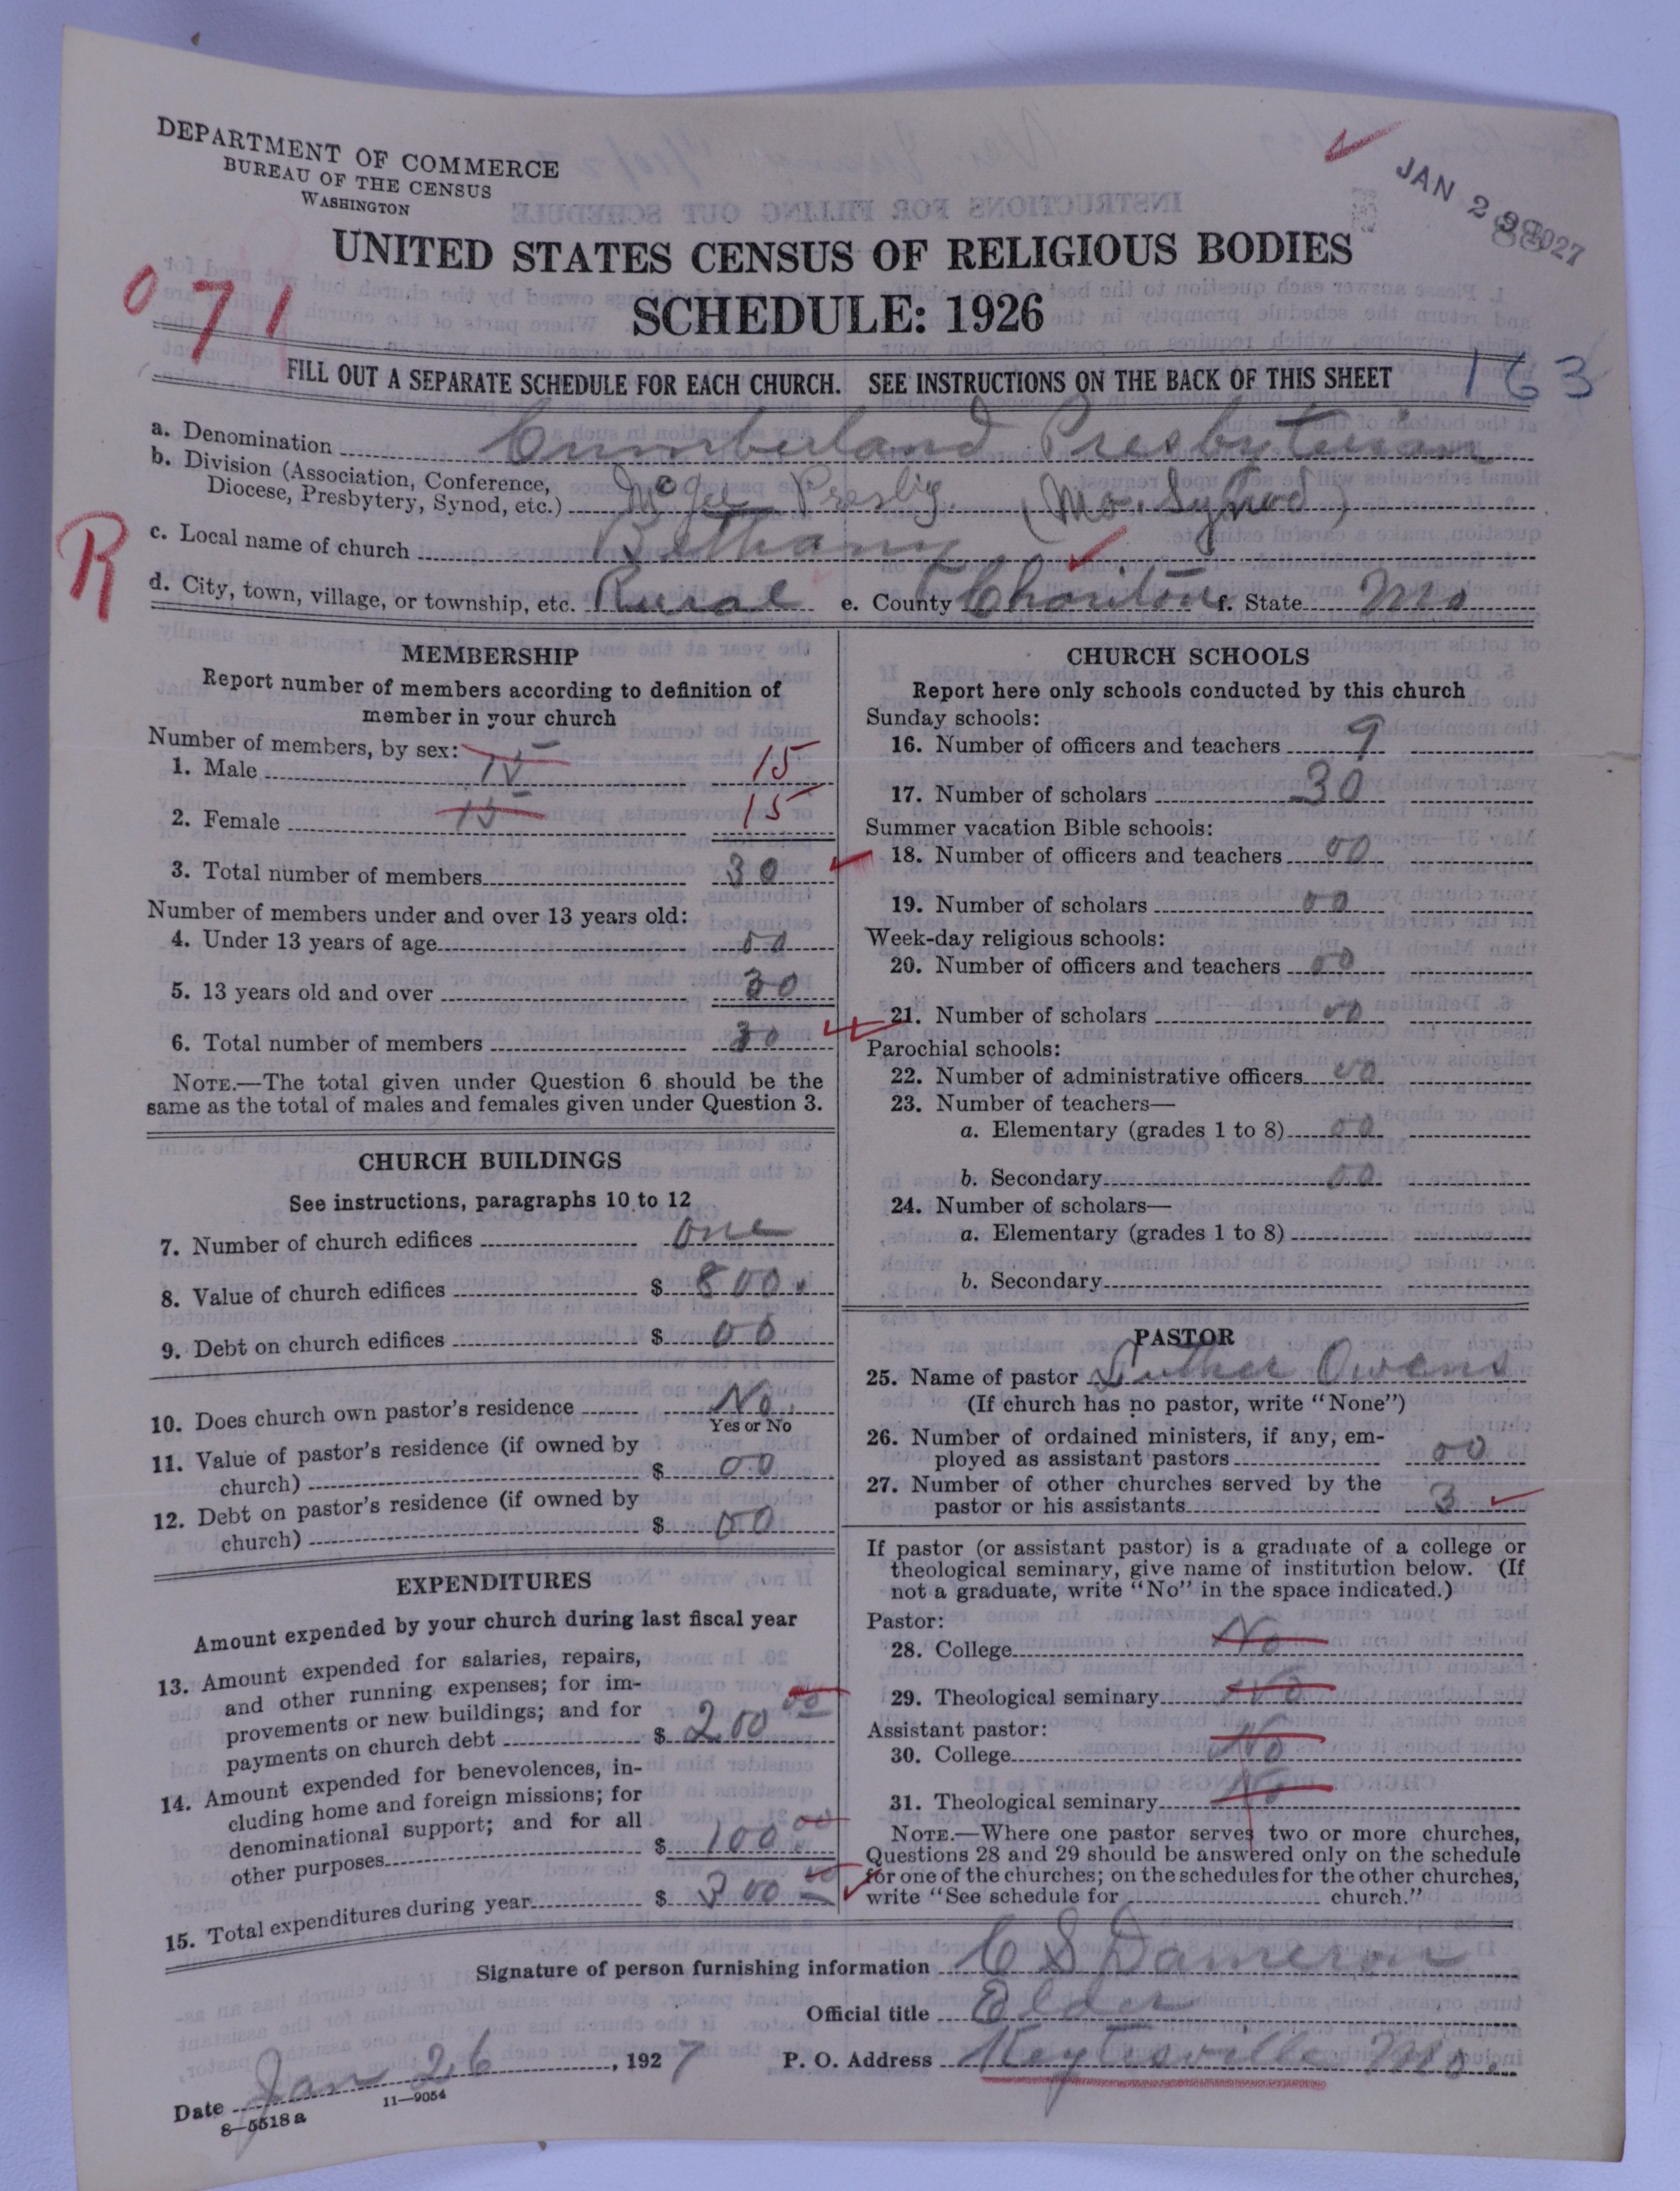 DEPARTMENT OF COMMERCE
BUREAU OF THE CENSUS
WASHINGTON
JAN 29 1927
UNITED STATES CENSUS OF RELIGIOUS BODIES
071
SCHEDULE: 1926
FILL OUT A SEPARATE SCHEDULE FOR EACH CHURCH. SEE INSTRUCTIONS ON THE BACK OF THIS SHEET
163
a. Denomination Cumberland Presbyterian
b. Division (Association, Conference,
Diocese, Presbytery, Synod, etc.) McGee Presby. (Mo. Synod)
R
c. Local name of church Bethany
d. City, town, village, or township, etc. Rural e. County Chariton f. State Mo
MEMBERSHIP
Report number of members according to definition of
member in your church
Number of members, by sex:
1. Male 15 15
2. Female 15 15
3. Total number of members 30
Number of members under and over 13 years old:
4. Under 13 years of age 00
5. 13 years old and over 30
6. Total number of members 30
NOTE.—The total given under Question 6 should be the
same as the total of males and females given under Question 3.
CHURCH BUILDINGS
See instructions, paragraphs 10 to 12
7. Number of church edifices one
8. Value of church edifices $ 800.
9. Debt on church edifices $ 00
10. Does church own pastor's residence No.
Yes or No
11. Value of pastor's residence (if owned by
church) $ 00
12. Debt on pastor's residence (if owned by
church) $ 00
EXPENDITURES
Amount expended by your church during last fiscal year
13. Amount expended for salaries, repairs,
and other running expenses; for im-
provements or new buildings; and for
payments on church debt $ 200 00
14. Amount expended for benevolences, in-
cluding home and foreign missions; for
denominational support; and for all
other purposes $ 100 00
15. Total expenditures during year $ 300 00
CHURCH SCHOOLS
Report here only schools conducted by this church
Sunday schools:
16. Number of officers and teachers 9
17. Number of scholars 30
Summer vacation Bible schools:
18. Number of officers and teachers 00
19. Number of scholars 00
Week-day religious schools:
20. Number of officers and teachers 00
21. Number of scholars 00
Parochial schools:
22. Number of administrative officers 00
23. Number of teachers—
a. Elementary (grades 1 to 8) 00
b. Secondary 00
24. Number of scholars—
a. Elementary (grades 1 to 8)
b. Secondary
PASTOR
25. Name of pastor Luther Owens
(If church has no pastor, write "None")
26. Number of ordained ministers, if any, em-
ployed as assistant pastors 00
27. Number of other churches served by the
pastor or his assistants 3
If pastor (or assistant pastor) is a graduate of a college or
theological seminary, give name of institution below. (If
not a graduate, write "No" in the space indicated.)
Pastor:
28. College No
29. Theological seminary No
Assistant pastor:
30. College No
31. Theological seminary No
NOTE.—Where one pastor serves two or more churches,
Questions 28 and 29 should be answered only on the schedule
for one of the churches; on the schedules for the other churches,
write "See schedule for church."
Signature of person furnishing information C S Dameron
Official title Elder
Date Jan 26, 1927 P. O. Address Keytesville Mo.
8—5518 a 11—9054